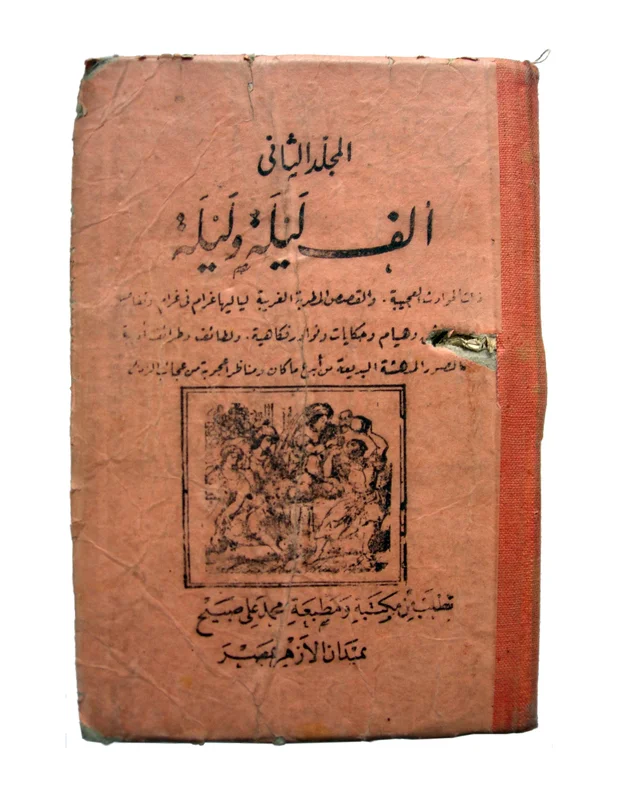 المجلد الثاني
ألف لَيْلَة وَلَيْلَة
ذات الحوادث العجيبة . والقصص المطربة الغريبة لياليها غرام في غرام وتفاصيل
وهيام وحكايات ونوادر فكاهية . ولطائف وطرائف أدبية
بالصور المدهشة البديعة من أبدع ما كان ومناظر أعجوبة من عجائب الزمان
تطلب من مكتبة ومطبعة محمد علي صبيح
بميدان الأزهر بمصر